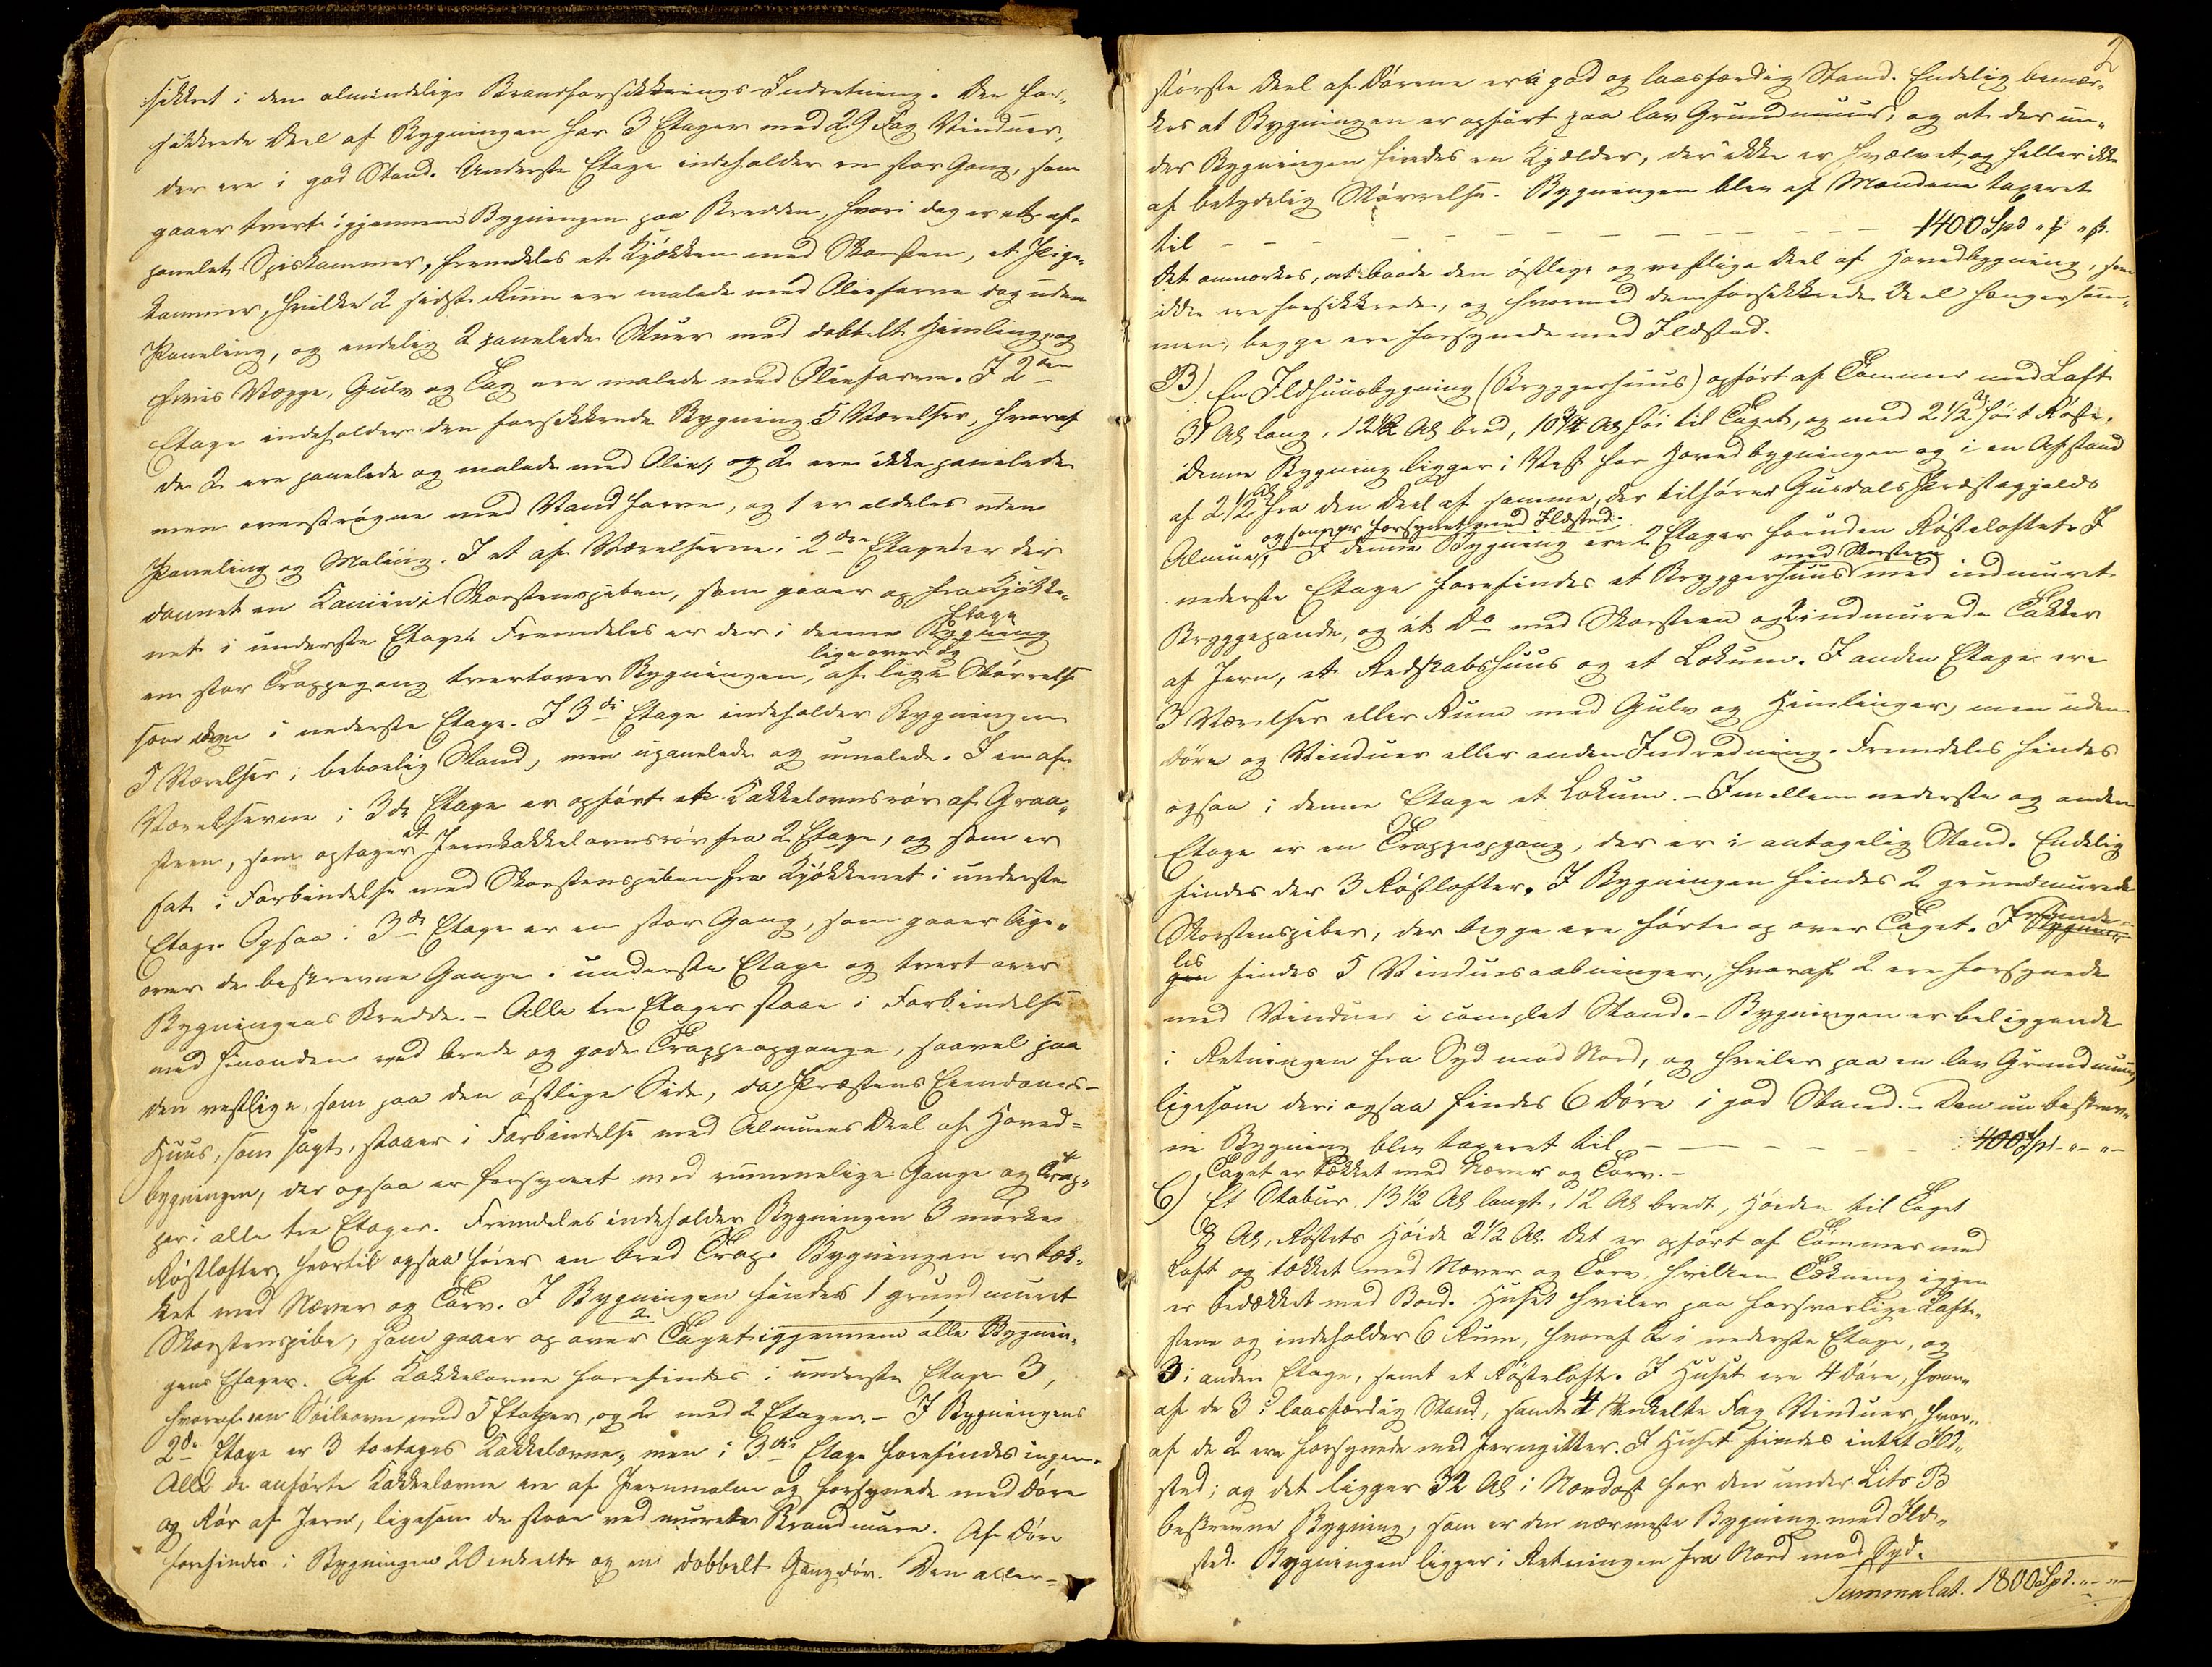 sikkret i den almindelige Brandforsikkrings-Indretning. Den for„
sikkrede Deel af Bygningen har 3 Etager med 29 Fag Vinduer,
der ere i god Stand. Underste Etage indeholder en stor Gang, som
gaaer tvert igjennem Bygningen paa Bredden, hvori dog er et af„
panelet Spiskammer, fremdeles et Kjøkken med Skorsten, et Pige„
kammer, hvilke 2 sidste Rum ere malede med Oliefarve dog uden
Paneling, og endelig 2 panelede Stuer med dobbelt Himling, og
hvis Vægge, Gulv og Tag ere malede med Oliefarve. I 2den
Etage indeholder den forsikkrede Bygning 5 Værelser, hvoraf
de 2 ere panelede og malede med Olie, og 2 ere ikke panelede
men overstrøgne med Vandfarve, og 1 er aldeles uden
Paneling og Maling. I et af Værelserne i 2den Etage er der
dannet en Kamin i Skorstenspiben, som gaaer op fra Kjøkke„
net i underste Etage. Fremdeles er der i denne Bygning Etage
en stor Trappegang tvertover Bygningen, lige over og af lige Størrelse
som den i nederste Etage. I 3die Etage indeholder Bygningen
5 Værelser i beboelig Stand, men upanelede og umalede. I en af
Værelserne i 3die Etage er opført et Kakkelovnsrør af Graa„
steen, som optager et Jernkakkelovnsrør fra 2 Etage, og som er
sat i Forbindelse med Skorstenspiben fra Kjøkkenet i underste
Etage. Ogsaa i 3die Etage er en stor Gang, som gaaer lige„
over de beskrevne Gange i underste Etage og tvert over
Bygningens Bredde. – Alle tre Etager staae i Forbindelse
med hinanden ved brede og gode Trappeopgange, saavel paa
den vestlige, som paa den østlige Side, da Præstens Eiendoms-
Huus, som sagt, staaer i Forbindelse med Almuens Deel af Hoved-
bygningen, der ogsaa er forsynet med rummelige Gange og Trap„
per i alle tre Etager. Fremdeles indeholder Bygningen 3 mørke
Røstlofter, hvortil ogsaa fører en bred Trap. Bygningen er tæk„
ket med Næver og Torv. I Bygningen findes 1 grundmuret
Skorstenspibe, som gaaer op over Taget igjennem alle 2 Bygnin„
gens Etager. Af Kakkelovne forefindes i underste Etage 3,
hvoraf een Søileovn med 5 Etager, og 2 med 2 Etager. – I Bygningens
2de Etage er 3 toetages Kakkelovne, men i 3die Etage forefindes ingen.
Alle de anførte Kakkelovne ere af Jernmalm og forsynede med Døre
og Rør af Jern, ligesom de staae ved murede Brandmure. Af Døre
forefindes i Bygningen 20 enkelte og en dobbelt Gangdør. Den aller-
2
største Deel af Dørene er i god og laasfærdig Stand. Endelig bemær„
kes at Bygningen er opført paa lav Grundmuur, og at der un„
der Bygningen findes en Kjælder, der ikke er hvælvet og heller ikke
af betydelig Størrelse. Bygningen blev af Mændene taxeret
til – – – – – – – – – – – – 1400 Spd „ β „ β.
Det anmærkes, at baade den østlige og vestlige Deel af Hovedbygning, som
ikke ere forsikkrede, og hvormed den forsikkrede Deel hænger sam„
men, begge ere forsynede med Ildsted.
B) En Ildhuusbygning (Bryggerhuus) opført af Tømmer med Laft
31 Al lang, 12½ Al bred, 10¾ Al høi til Taget, og med 2½ Al høit Røste.
Denne Bygning ligger i Vest for Hovedbygningen og i en Afstand
af 2½ Al fra den Deel af samme, der tilhører Gusdals Præstegjelds
Almue, og som er forsynet med Ildsted. I denne Bygning ere 2 Etager foruden Røsteloftet. I
nederste Etage forefindes et Bryggerhuus med Skorsteen med indmuret
Bryggepande, og et Do med Skorsteen og 2 indmurede Takker
af Jern, et Redskabshuus og et Lokum. I anden Etage ere
3 Værelser eller Rum med Gulv og Himlinger, men uden
Døre og Vinduer eller anden Indredning. Fremdeles findes
ogsaa i denne Etage et Lokum. – Imellem nederste og anden
Etage er en Trappeopgang, der er i antagelig Stand. Endelig
findes der 3 Røstlofter. I Bygningen findes 2 grundmurede
Skorstenspiber, der begge ere førte op over Taget. I Bygnin Fremde„
gen les findes 5 Vinduesaabninger, hvoraf 2 ere forsynede
med Vinduer i complet Stand. – Bygningen er beliggende
i Retningen fra Syd mod Nord, og hviler paa en lav Grundmuur,
ligesom deri ogsaa findes 6 Døre i god Stand. – Den nu beskrev„
ne Bygning blev taxeret til – – – – – – 400 Spd. „– „–
Taget er tækket med Næver og Torv. –
C) Et Stabur 13½ Al langt, 12 Al bredt, Høiden til Taget
8 Al, Røstets Høide 2½ Al. Det er opført af Tømmer med
Laft og tækket med Næver og Torv, hvilken Tækning igjen
er bedækket med Bord. Huset hviler paa forsvarlige Lafte„
stene og indeholder 6 Rum, hvoraf 2 i nederste Etage, og
3 i anden Etage, samt et Røsteloft. I Huset ere 4 Døre, hvor„
af de 3 i laasfærdig Stand, samt 4 enkelte Fag Vinduer, hvor„
af de 2 ere forsynede med Jerngitter. I Huset findes intet Ild„
sted; og det ligger 32 Al i Nordost for den under Lits B
beskrevne Bygning, som er den nærmeste Bygning med Ild„
sted. Bygningen ligger i Retningen fra Nord mod Syd.
Summa Lat. 1800 Spd. „– „–